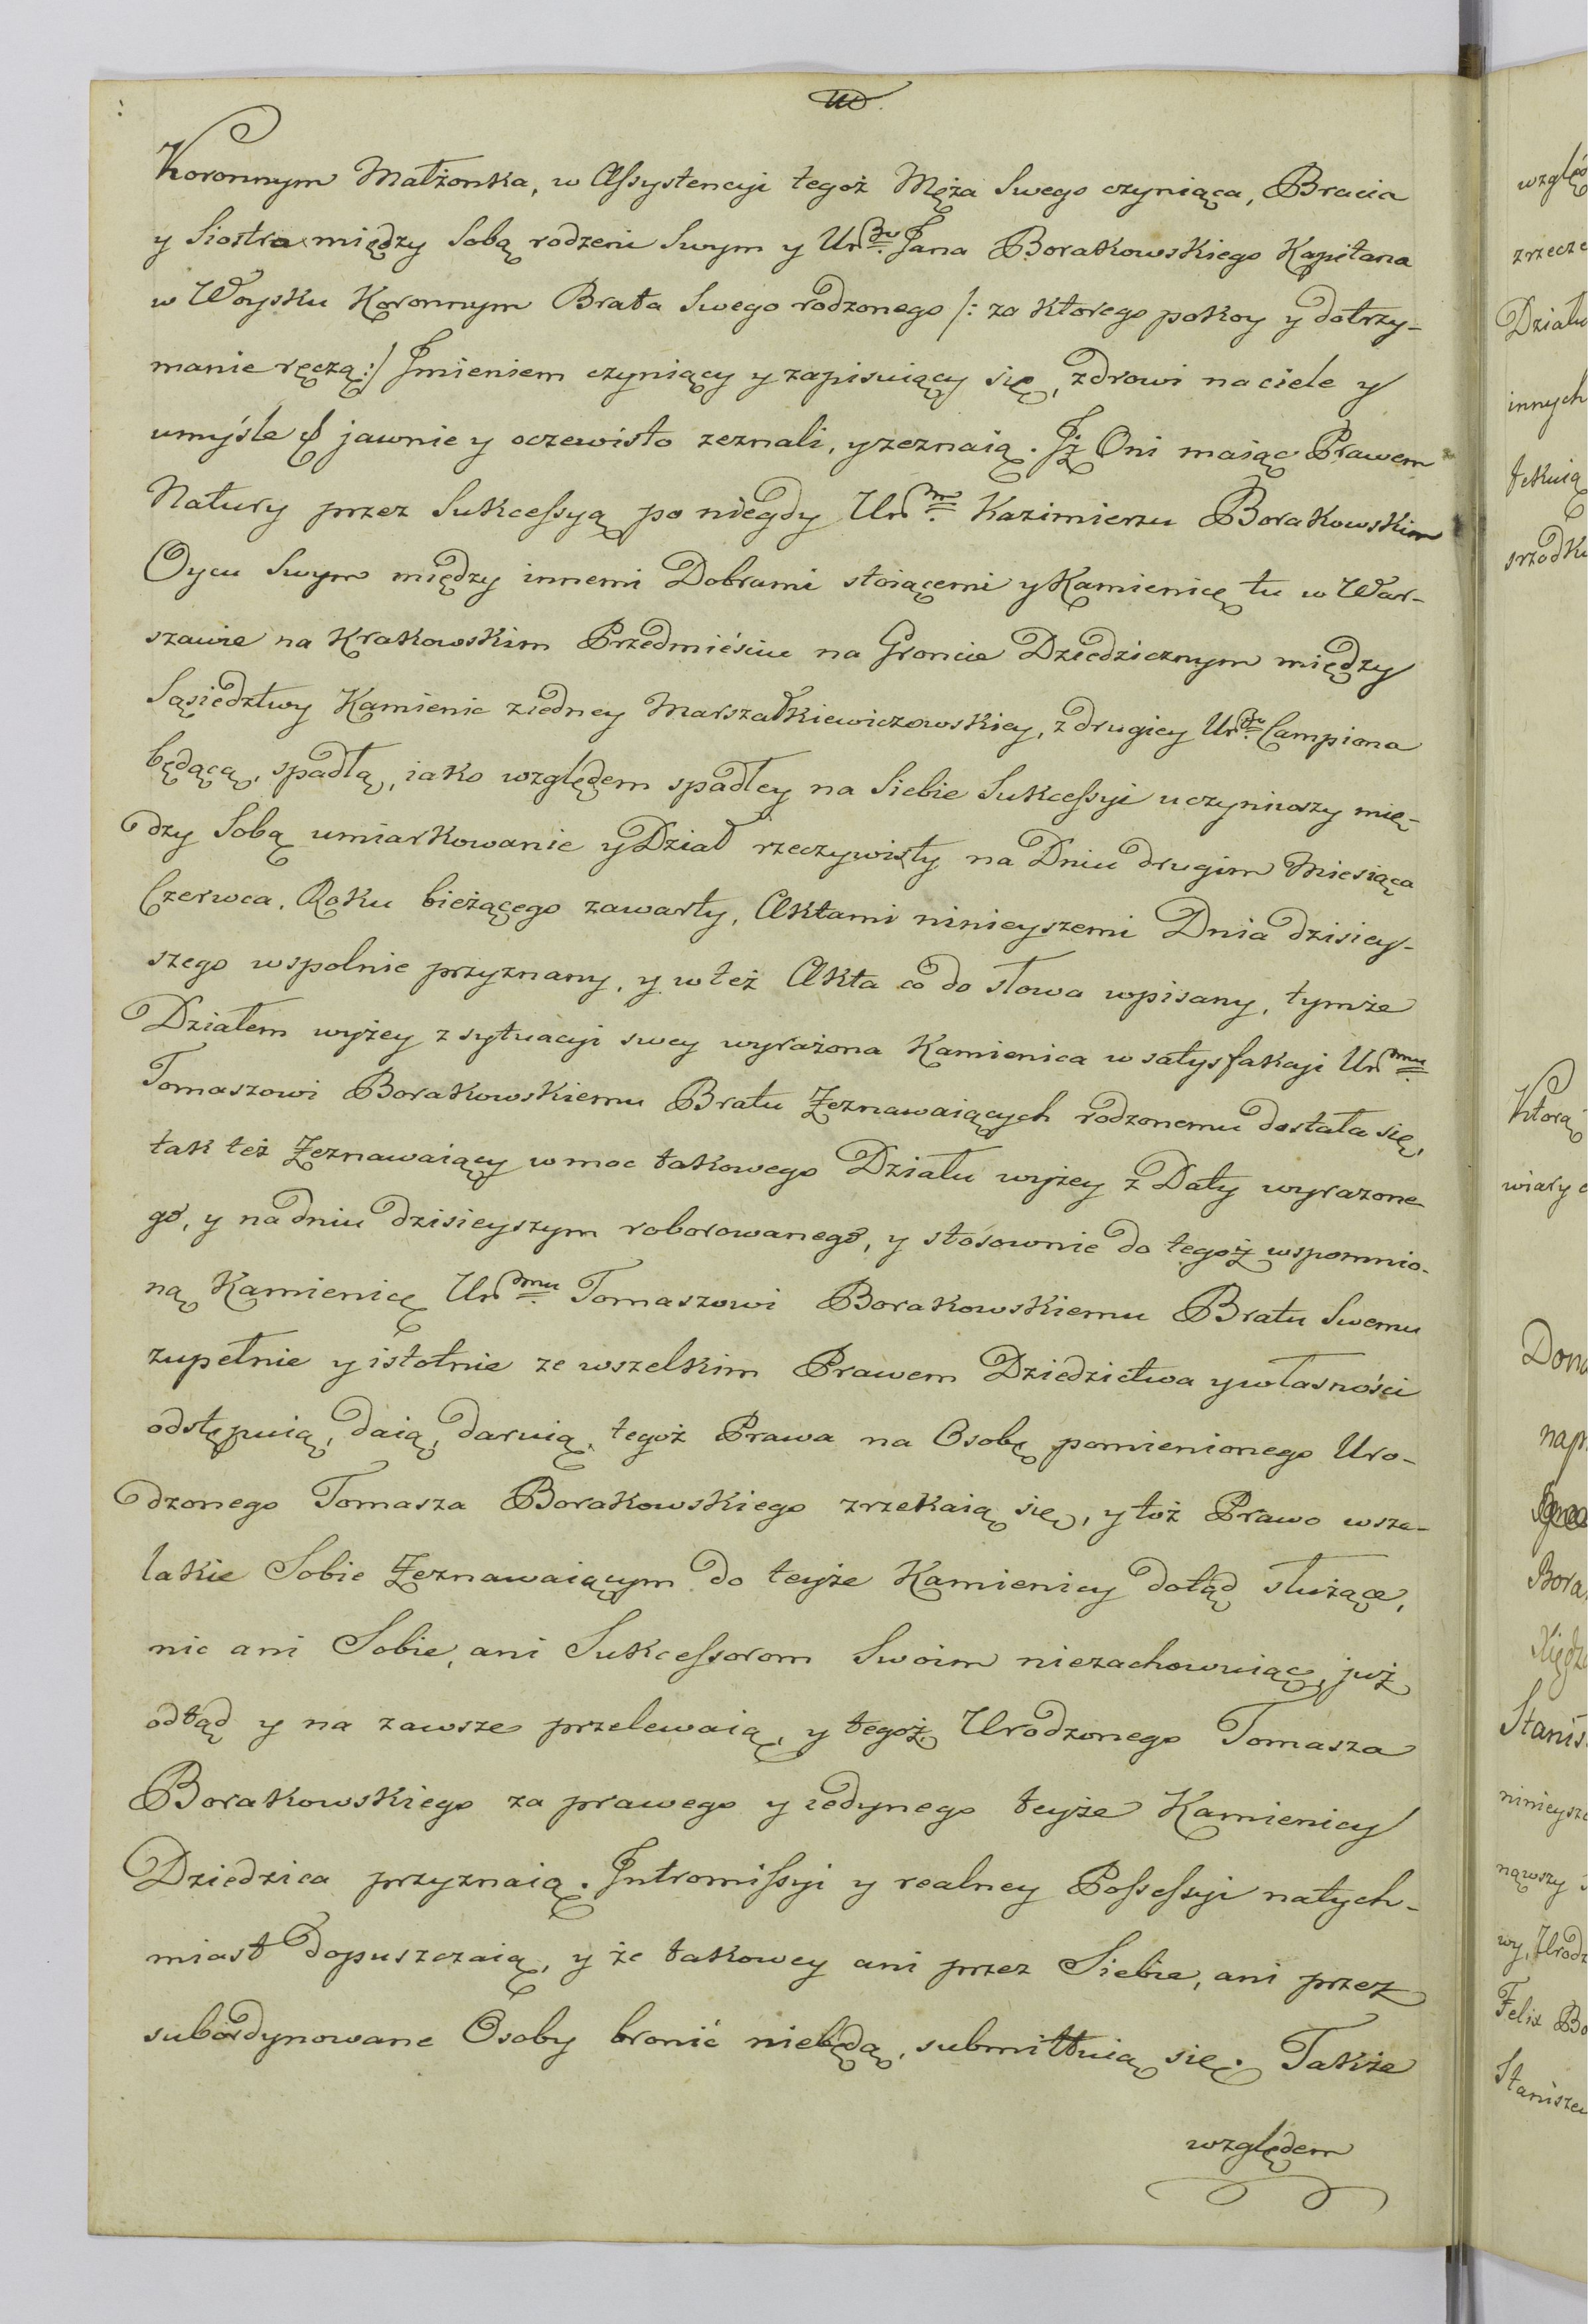 Koronnym Małżonka, w Assystencyi tegoż Męża Swego czyniąca, Bracia
y Siostra między Sobą rodzeni Swym y Ur. Jana Borakowskiego Kapitana
w Woysku Koronnym Brata Swego rodzonego /: za ktorego pokoy y dotrzy-
manie ręczą :/ Jmieniem czyniący y zapisuiący się, zdrowi na ciele y
umyśle jawnie y oczewisto zeznali, y zeznaią. Jż Oni maiąc Prawem
Natury przez Sukcessyą po niegdy Ur.m Kazimierzu Borakowskim
Oycu Swym między innemi Dobrami stoiącemi y Kamienicę tu w War-
szawie na Krakowskim Przedmieściu na Groncie Dziedzicznym między
Sąsiedztwy Kamienic z iedney Marszałkiewiczowskiey, z drugiey Ur. Campiona
będącą, spadłą, iako względem spadłey na Siebie Sukcessyi uczyniwszy mię-
dzy Sobą umiarkowanie y Dział rzeczywisty na Dniu drugim Miesiąca
Czerwca, Roku bieżącego zawarty, Aktami ninieyszemi Dnia dzisiey-
szego wspolnie przyznany, y w też Akta co do słowa wpisany, tymże
Działem wyżey z sytuacyi swey wyrażona Kamienica w satysfakcyi Ur.mu
Tomaszowi Borakowskiemu Bratu Zeznawaiących rodzonemu dostała się,
tak też Zeznawaiący w moc takowego Działu wyżey z Daty wyrazone-
go, y na dniu dzisieyszym roborowanego, y stosownie do tegoż wspomnio-
ną Kamienicę Ur.mu Tomaszowi Borakowskiemu Bratu Swemu
zupełnie y istotnie ze wszelkim Prawem Dziedzictwa y własności
odstępuią, daią, daruią, tegoż Prawa na Osobę pomienionego Uro-
dzonego Tomasza Borakowskiego zrzekaią się, y toż Prawo wsze-
lakie Sobie Zeznawaiącym do teyże Kamienicy dotąd służące,
nic ani Sobie, ani Sukcessorom Swoim niezachowuiąc, już
odtąd y na zawsze przelewaią, y tegoż Urodzonego Tomasza
Borakowskiego za prawego y iedynego teyże Kamienicy
Dziedzica przyznaią. Jntromissyi y realney Possessyi natych-
miast dopuszczaią, y że takowey ani przez Siebie, ani przez
subordynowane Osoby bronić niebędą, submittuią się. Także
względem